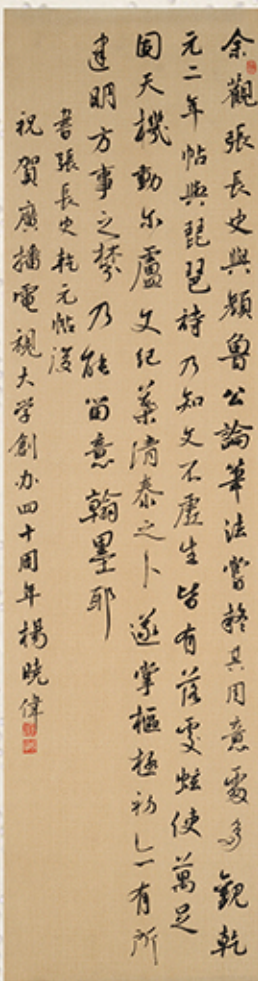 余觀張長史與顏魯公論筆法嘗疑其用意處多觀乾
元二年帖與琵琶詩乃知文不虛生皆有落處蚿使萬足
固天機動尔盧文紀藥清泰之卜遂掌樞極初亡有所
建明方事之棼乃能留意翰墨耶
書張長史乾元帖後
祝賀廣播電視大学創办四十周年楊曉偉